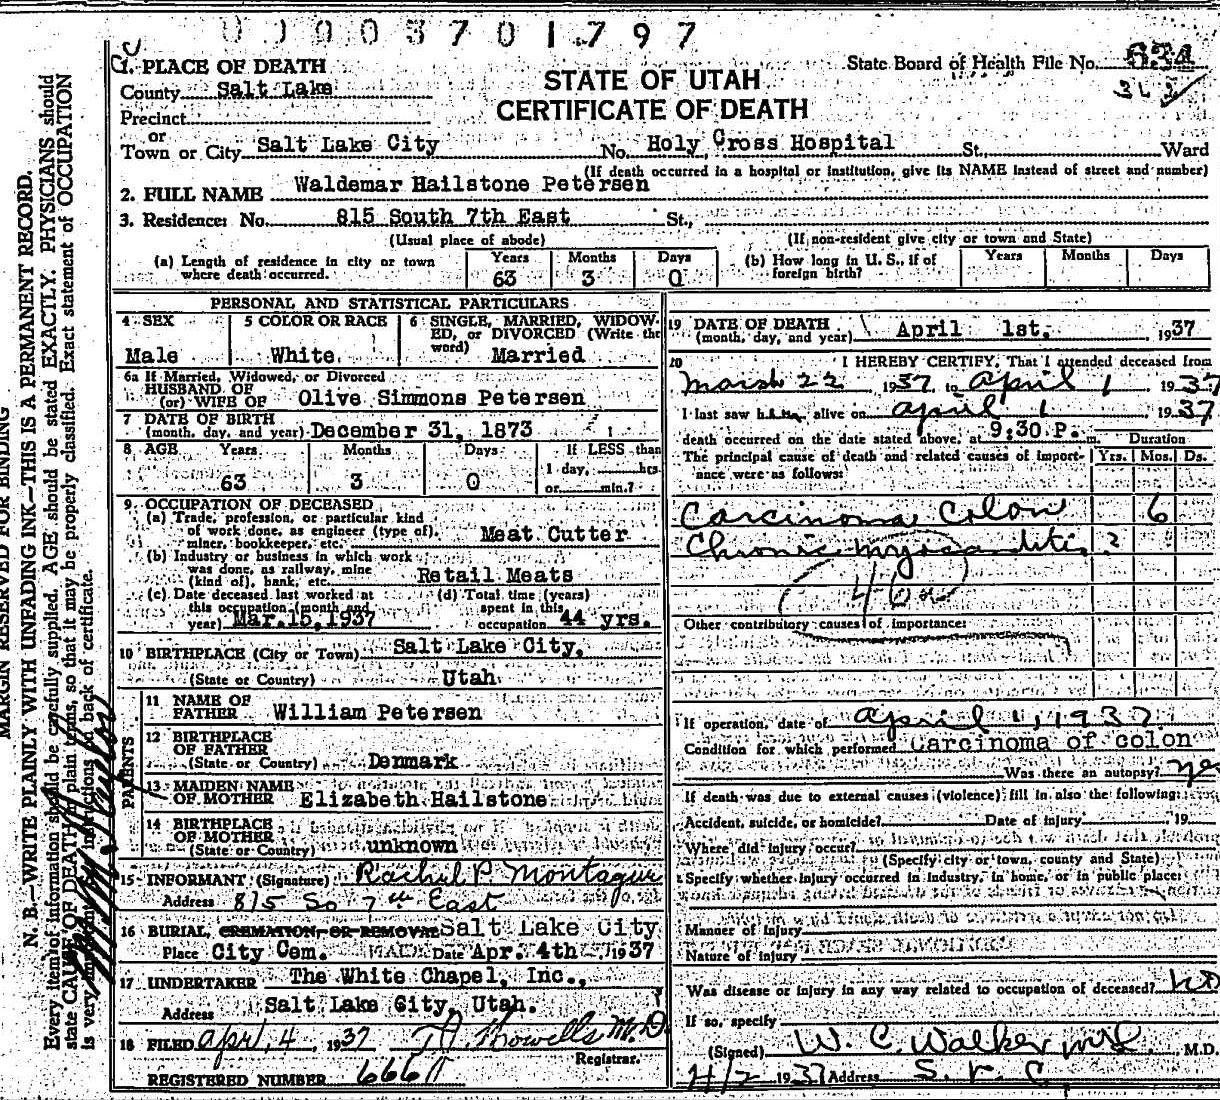 0 0 0 3 7 0 1 7 9 7
State Board of Health File No.
STATE OF UTAH
CERTIFICATE OF DEATH
1. PLACE OF DEATH
County Salt Lake
Precinct
or
Town or City Salt Lake City No. Holy Cross Hospital St., Ward
(If death occurred in a hospital or institution, give its NAME instead of street and number)
2. FULL NAME Waldemar Hailstone Petersen
3. Residence: No. 815 South 7th East St.,
(Usual place of abode) (If non-resident give city or town and State)
(a) Length of residence in city or town where death occurred. Years 63 Months 3 Days 0
(b) How long in U. S., if of foreign birth? Years Months Days
PERSONAL AND STATISTICAL PARTICULARS
4 SEX Male
5 COLOR OR RACE White
6 SINGLE, MARRIED, WIDOWED, or DIVORCED (Write the word) Married
6a If Married, Widowed, or Divorced
HUSBAND OF
(or) WIFE OF Olive Simmons Petersen
7 DATE OF BIRTH
(month, day, and year) December 31, 1873
8 AGE Years 63 Months 3 Days 0 If LESS than 1 day, hrs. or min.?
9 OCCUPATION OF DECEASED
(a) Trade, profession, or particular kind
of work done, as engineer (type of),
miner, bookkeeper, etc. Meat Cutter
(b) Industry or business in which work
was done, as railway, mine
(kind of), bank, etc. Retail Meats
(c) Date deceased last worked at
this occupation (month and
year) Mar. 15, 1937
(d) Total time (years)
spent in this
occupation 44 yrs.
10 BIRTHPLACE (City or Town) Salt Lake City,
(State or Country) Utah
PARENTS
11 NAME OF
FATHER William Petersen
12 BIRTHPLACE
OF FATHER
(State or Country) Denmark
13 MAIDEN NAME
OF MOTHER Elizabeth Hailstone
14 BIRTHPLACE
OF MOTHER
(State or Country) unknown
15 INFORMANT (Signature) Rachel P Montague
Address 815 So 7th East
16 BURIAL, CREMATION, OR REMOVAL Salt Lake City
Place City Cem. Date Apr. 4th 1937
17 UNDERTAKER The White Chapel, Inc.,
Address Salt Lake City, Utah.
18 FILED April 4, 1937 Howells M.D.
Registrar.
REGISTERED NUMBER 666
19 DATE OF DEATH
(month, day, and year) April 1st, 1937
20 I HEREBY CERTIFY, That I attended deceased from
March 22 1937 to April 1 1937
I last saw him alive on April 1 1937
death occurred on the date stated above, at 9:30 P. m. Duration
The principal cause of death and related causes of importance were as follows: Yrs. Mos. Ds.
Carcinoma Colon 6
Chronic Myocarditis 2
46
Other contributory causes of importance:
If operation, date of April 1, 1937
Condition for which performed Carcinoma of colon
Was there an autopsy? yes
If death was due to external causes (violence) fill in also the following:
Accident, suicide, or homicide? Date of injury 19
Where did injury occur?
(Specify city or town, county and State)
Specify whether injury occurred in industry, in home, or in public place:
Manner of Injury
Nature of Injury
Was disease or injury in any way related to occupation of deceased? no
If so, specify
(Signed) W. C. Walker M.D.
4/2 1937 Address S. L. C.
MARGIN RESERVED FOR BINDING
N. B.—WRITE PLAINLY WITH UNFADING INK—THIS IS A PERMANENT RECORD.
Every item of information should be carefully supplied. AGE should be stated EXACTLY. PHYSICIANS should
state CAUSE OF DEATH in plain terms, so that it may be properly classified. Exact statement of OCCUPATION
is very important. See instructions on back of certificate.